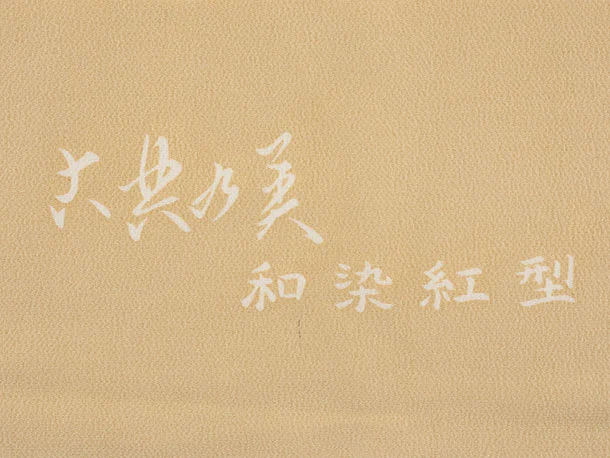 古典乃美
和染紅型